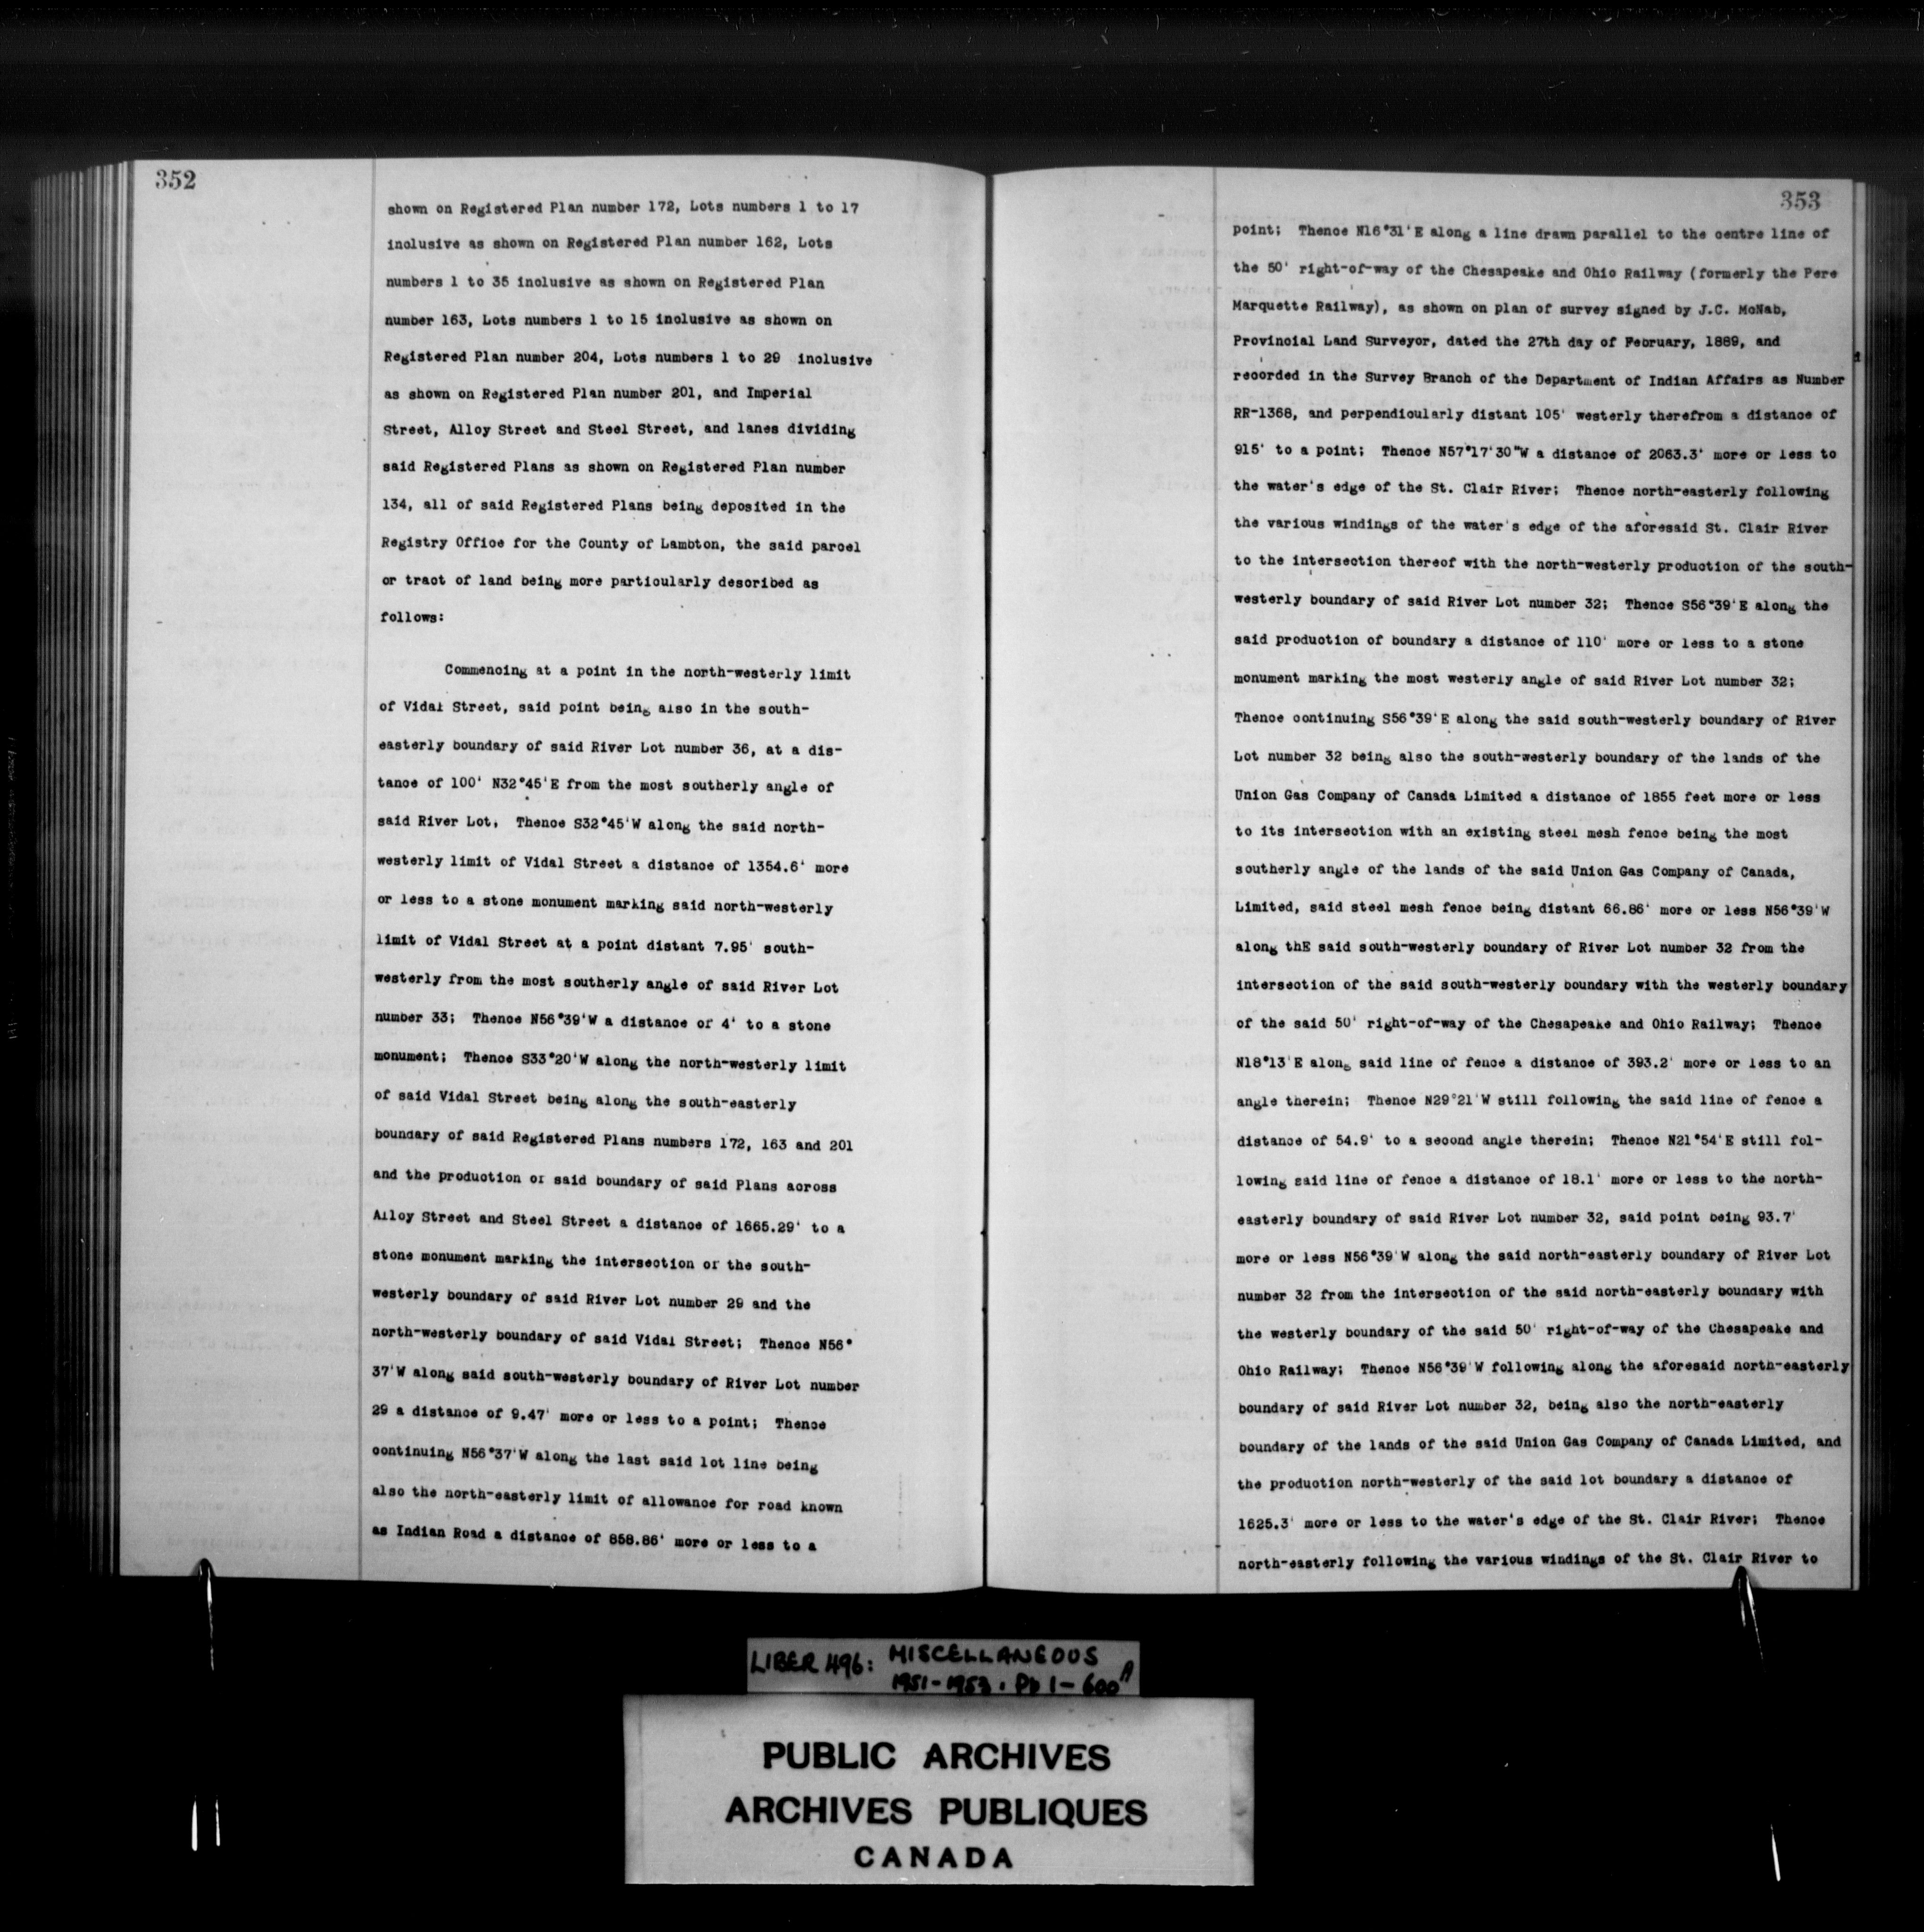 352
shown on Registered Plan number 172, Lots numbers 1 to 17
inclusive as shown on Registered Plan number 162, Lots
numbers 1 to 35 inclusive as shown on Registered Plan
number 163, Lots numbers 1 to 15 inclusive as shown on
Registered Plan number 204, Lots numbers 1 to 29 inclusive
as shown on Registered Plan number 201, and Imperial
Street, Alloy Street and Steel Street, and lanes dividing
said Registered Plans as shown on Registered Plan number
134, all of said Registered Plans being deposited in the
Registry Office for the County of Lambton, the said parcel
or tract of land being more particularly described as
follows:
Commencing at a point in the north-westerly limit
of Vidal Street, said point being also in the south-
easterly boundary of said River Lot number 36, at a dis-
tance of 100' N32°45'E from the most southerly angle of
said River Lot, Thence S32°45'W along the said north-
westerly limit of Vidal Street a distance of 1354.6' more
or less to a stone monument marking said north-westerly
limit of Vidal Street at a point distant 7.95' south-
westerly from the most southerly angle of said River Lot
number 33; Thence N56°39'W a distance of 4' to a stone
monument; Thence S33°20'W along the north-westerly limit
of said Vidal Street being along the south-easterly
boundary of said Registered Plans numbers 172, 163 and 201
and the production of said boundary of said Plans across
Alloy Street and Steel Street a distance of 1665.29' to a
stone monument marking the intersection of the south-
westerly boundary of said River Lot number 29 and the
north-westerly boundary of said Vidal Street; Thence N56°
37'W along said south-westerly boundary of River Lot number
29 a distance of 9.47' more or less to a point; Thence
continuing N56°37'W along the last said lot line being
also the north-easterly limit of allowance for road known
as Indian Road a distance of 858.86' more or less to a
353
point; Thence N16°31'E along a line drawn parallel to the centre line of
the 50' right-of-way of the Chesapeake and Ohio Railway (formerly the Pere
Marquette Railway), as shown on plan of survey signed by J.C. McNab,
Provincial Land Surveyor, dated the 27th day of February, 1889, and
recorded in the Survey Branch of the Department of Indian Affairs as Number
RR-1368, and perpendicularly distant 105' westerly therefrom a distance of
915' to a point; Thence N57°17'30"W a distance of 2063.3' more or less to
the water's edge of the St. Clair River; Thence north-easterly following
the various windings of the water's edge of the aforesaid St. Clair River
to the intersection thereof with the north-westerly production of the south-
westerly boundary of said River Lot number 32; Thence S56°39'E along the
said production of boundary a distance of 110' more or less to a stone
monument marking the most westerly angle of said River Lot number 32;
Thence continuing S56°39'E along the said south-westerly boundary of River
Lot number 32 being also the south-westerly boundary of the lands of the
Union Gas Company of Canada Limited a distance of 1855 feet more or less
to its intersection with an existing steel mesh fence being the most
southerly angle of the lands of the said Union Gas Company of Canada,
Limited, said steel mesh fence being distant 66.86' more or less N56°39'W
along thE said south-westerly boundary of River Lot number 32 from the
intersection of the said south-westerly boundary with the westerly boundary
of the said 50' right-of-way of the Chesapeake and Ohio Railway; Thence
N18°13'E along said line of fence a distance of 393.2' more or less to an
angle therein; Thence N29°21'W still following the said line of fence a
distance of 54.9' to a second angle therein; Thence N21°54'E still fol-
lowing said line of fence a distance of 18.1' more or less to the north-
easterly boundary of said River Lot number 32, said point being 93.7'
more or less N56°39'W along the said north-easterly boundary of River Lot
number 32 from the intersection of the said north-easterly boundary with
the westerly boundary of the said 50' right-of-way of the Chesapeake and
Ohio Railway; Thence N56°39'W following along the aforesaid north-easterly
boundary of said River Lot number 32, being also the north-easterly
boundary of the lands of the said Union Gas Company of Canada Limited, and
the production north-westerly of the said lot boundary a distance of
1625.3' more or less to the water's edge of the St. Clair River; Thence
north-easterly following the various windings of the St. Clair River to
LIBER 496: MISCELLANEOUS
1951-1953. Pp 1-600A
PUBLIC ARCHIVES
ARCHIVES PUBLIQUES
CANADA